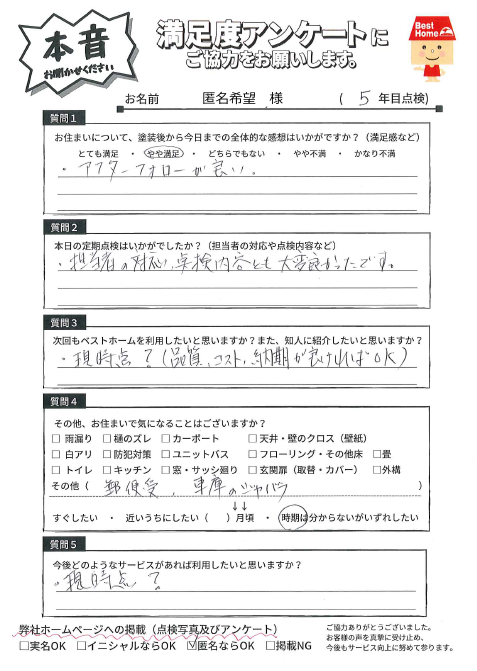 本音
お聞かせください
満足度アンケートに
ご協力をお願いします。
Best Home
お名前 匿名希望 様 ( 5 年目点検)
質問1
お住まいについて、塗装後から今日までの全体的な感想はいかがですか?(満足感など)
とても満足 ・ やや満足 ・ どちらでもない ・ やや不満 ・ かなり不満
・アフターフォローが良い。
質問2
本日の定期点検はいかがでしたか?(担当者の対応や点検内容など)
・担当者の対応、点検内容とも大変良かったです。
質問3
次回もベストホームを利用したいと思いますか?また、知人に紹介したいと思いますか?
・現時点?(品質、コスト、納期が良ければOK)
質問4
その他、お住まいで気になることはございますか?
□ 雨漏り □ 樋のズレ □ カーポート □ 天井・壁のクロス(壁紙)
□ 白アリ □ 防犯対策 □ ユニットバス □ フローリング・その他床 □畳
□ トイレ □ キッチン □ 窓・サッシ廻り □ 玄関扉(取替・カバー) □外構
その他( 郵便受、車庫のジャバラ )
↓↓
すぐしたい ・ 近いうちにしたい( )月頃 ・ 時期は分からないがいずれしたい
質問5
今後どのようなサービスがあれば利用したいと思いますか?
・現時点?
弊社ホームページへの掲載(点検写真及びアンケート)
□実名OK □イニシャルならOK ☑匿名ならOK □掲載NG
ご協力ありがとうございました。
お客様の声を真摯に受け止め、
今後もサービス向上に努めて参ります。